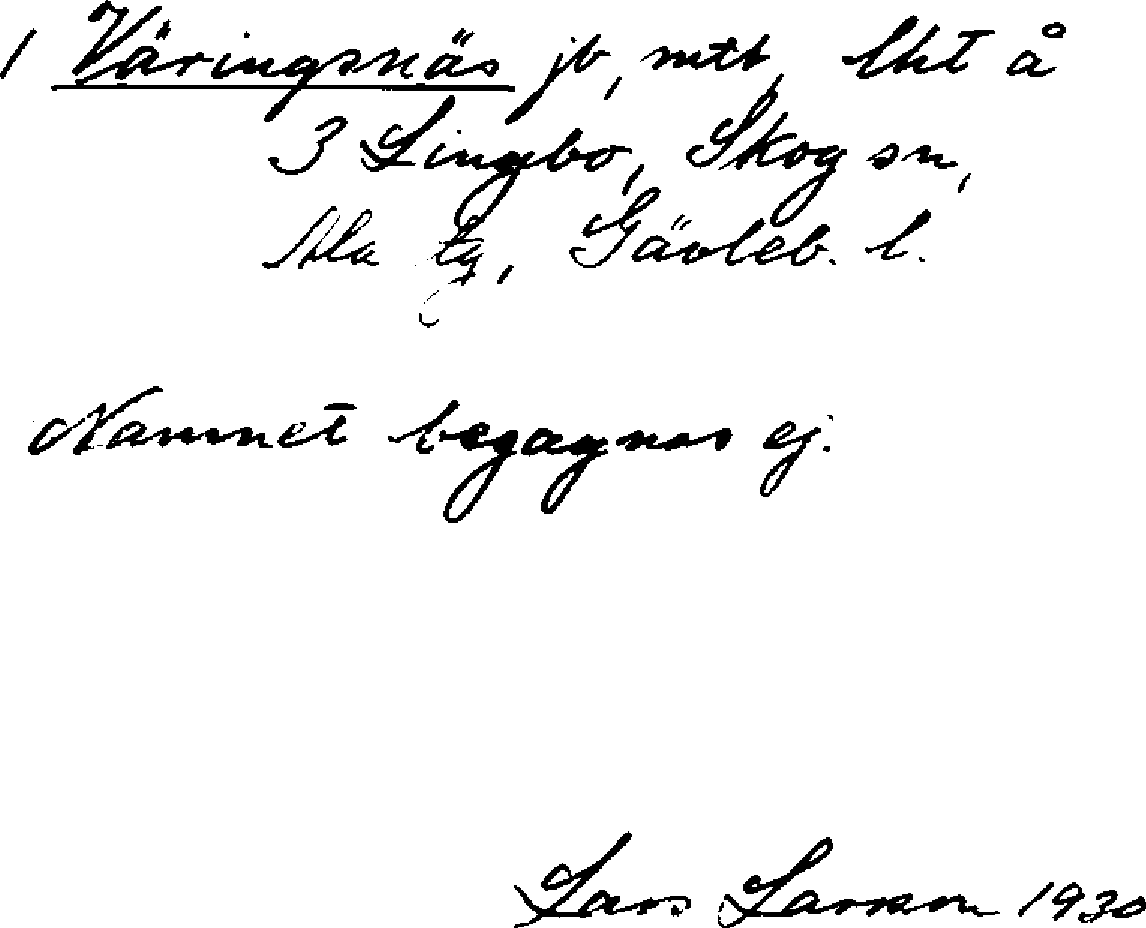 1 Väringsnäs jb, mtl, lht å
3 Lingbo, Skog sn,
Ala tg, Gävleb. l.
Namnet begagnas ej.
Lars Larsson 1930